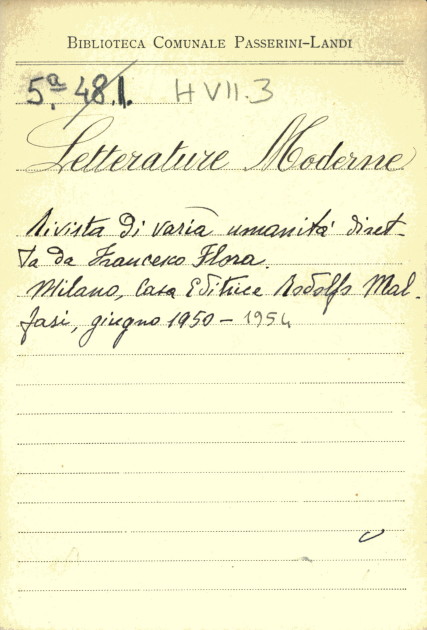 BIBLIOTECA COMUNALE PASSERINI-LANDI
5.ª 48.I. H VII.3
Letterature Moderne
Rivista di varia umanità diret-
ta da Francesco Flora.
Milano, Casa Editrice Rodolfo Mal-
fasi, giugno 1950 - 1954